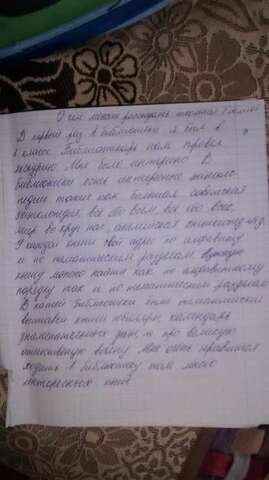 О чем может рассказать школьная библиот
В первый раз в библиотеке я был в
1 классе. Библиотекарь нам провел
экскурию. Мне было интерено. В
библиотеке есть интересные энцикло-
педии такие как большая советская
энциклопедия, всё обо всем, все обо всех,
мир во круг нас, английская
У каждой книги свой адрес по алфавиту
и по тематическим разделам. Нужную
книгу можно найти как по алфавитному
порядку так и по тематическим разделам
В нашей библиотеки есть тематические
выставки книги юбиляры, календарь
знаменательных дат, и про великую
отечественную войну. Мне очень нравится
ходить в библиотеку там много
интересных книг